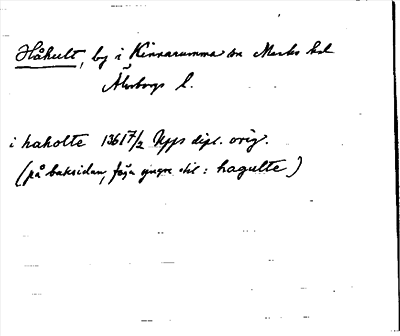 Håhult, by i Kinnarumma sn Marks hd
Älvsborgs l.
i haholte 1361 7/2 Upps dipl. orig.
(på baksidan, yngre stil: hagulte)